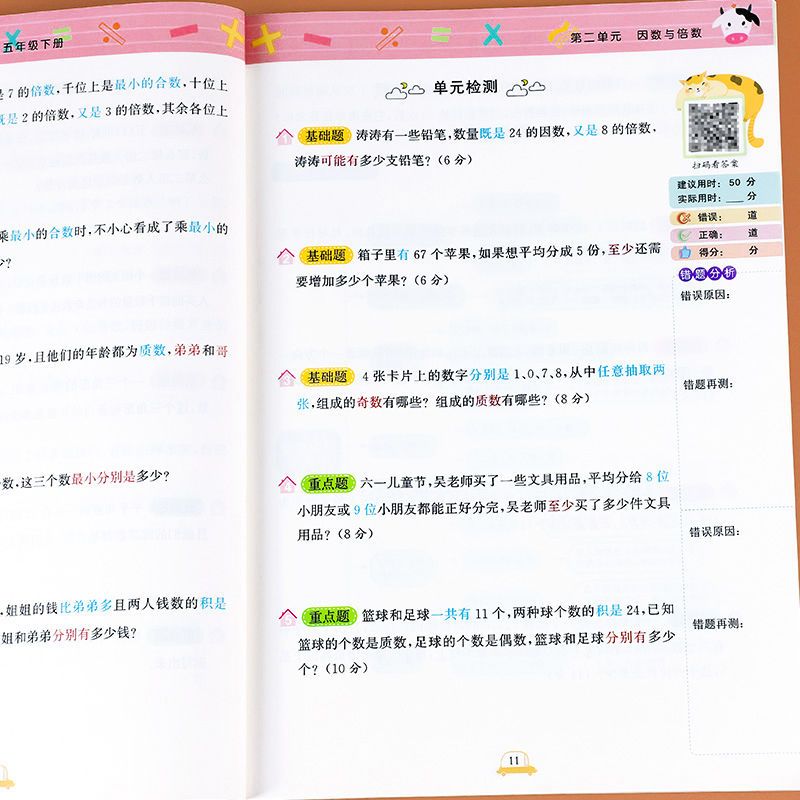 五年级下册
是 7 的倍数，千位上是最小的合数，十位上
既是 2 的倍数，又是 3 的倍数，其余各位上
乘最小的合数时，不小心看成了乘最小的
少？
19 岁，且他们的年龄都为质数，弟弟和哥
数，这三个数最小分别是多少？
，姐姐的钱比弟弟多且两人钱数的积是
姐和弟弟分别有多少钱？
第二单元 因数与倍数
单元检测
1 基础题 涛涛有一些铅笔，数量既是 24 的因数，又是 8 的倍数，
涛涛可能有多少支铅笔？（6 分）
2 基础题 箱子里有 67 个苹果，如果想平均分成 5 份，至少还需
要增加多少个苹果？（6 分）
3 基础题 4 张卡片上的数字分别是 1、0、7、8，从中任意抽取两
张，组成的奇数有哪些？组成的质数有哪些？（8 分）
4 重点题 六一儿童节，吴老师买了一些文具用品，平均分给 8 位
小朋友或 9 位小朋友都能正好分完，吴老师至少买了多少件文具
用品？（8 分）
5 重点题 篮球和足球一共有 11 个，两种球个数的积是 24，已知
篮球的个数是质数，足球的个数是偶数，篮球和足球分别有多少
个？（10 分）
扫码看答案
建议用时： 50 分
实际用时：___分
错误： 道
正确： 道
得分： 分
错题分析
错误原因：
错题再测：
错误原因：
错题再测：
11